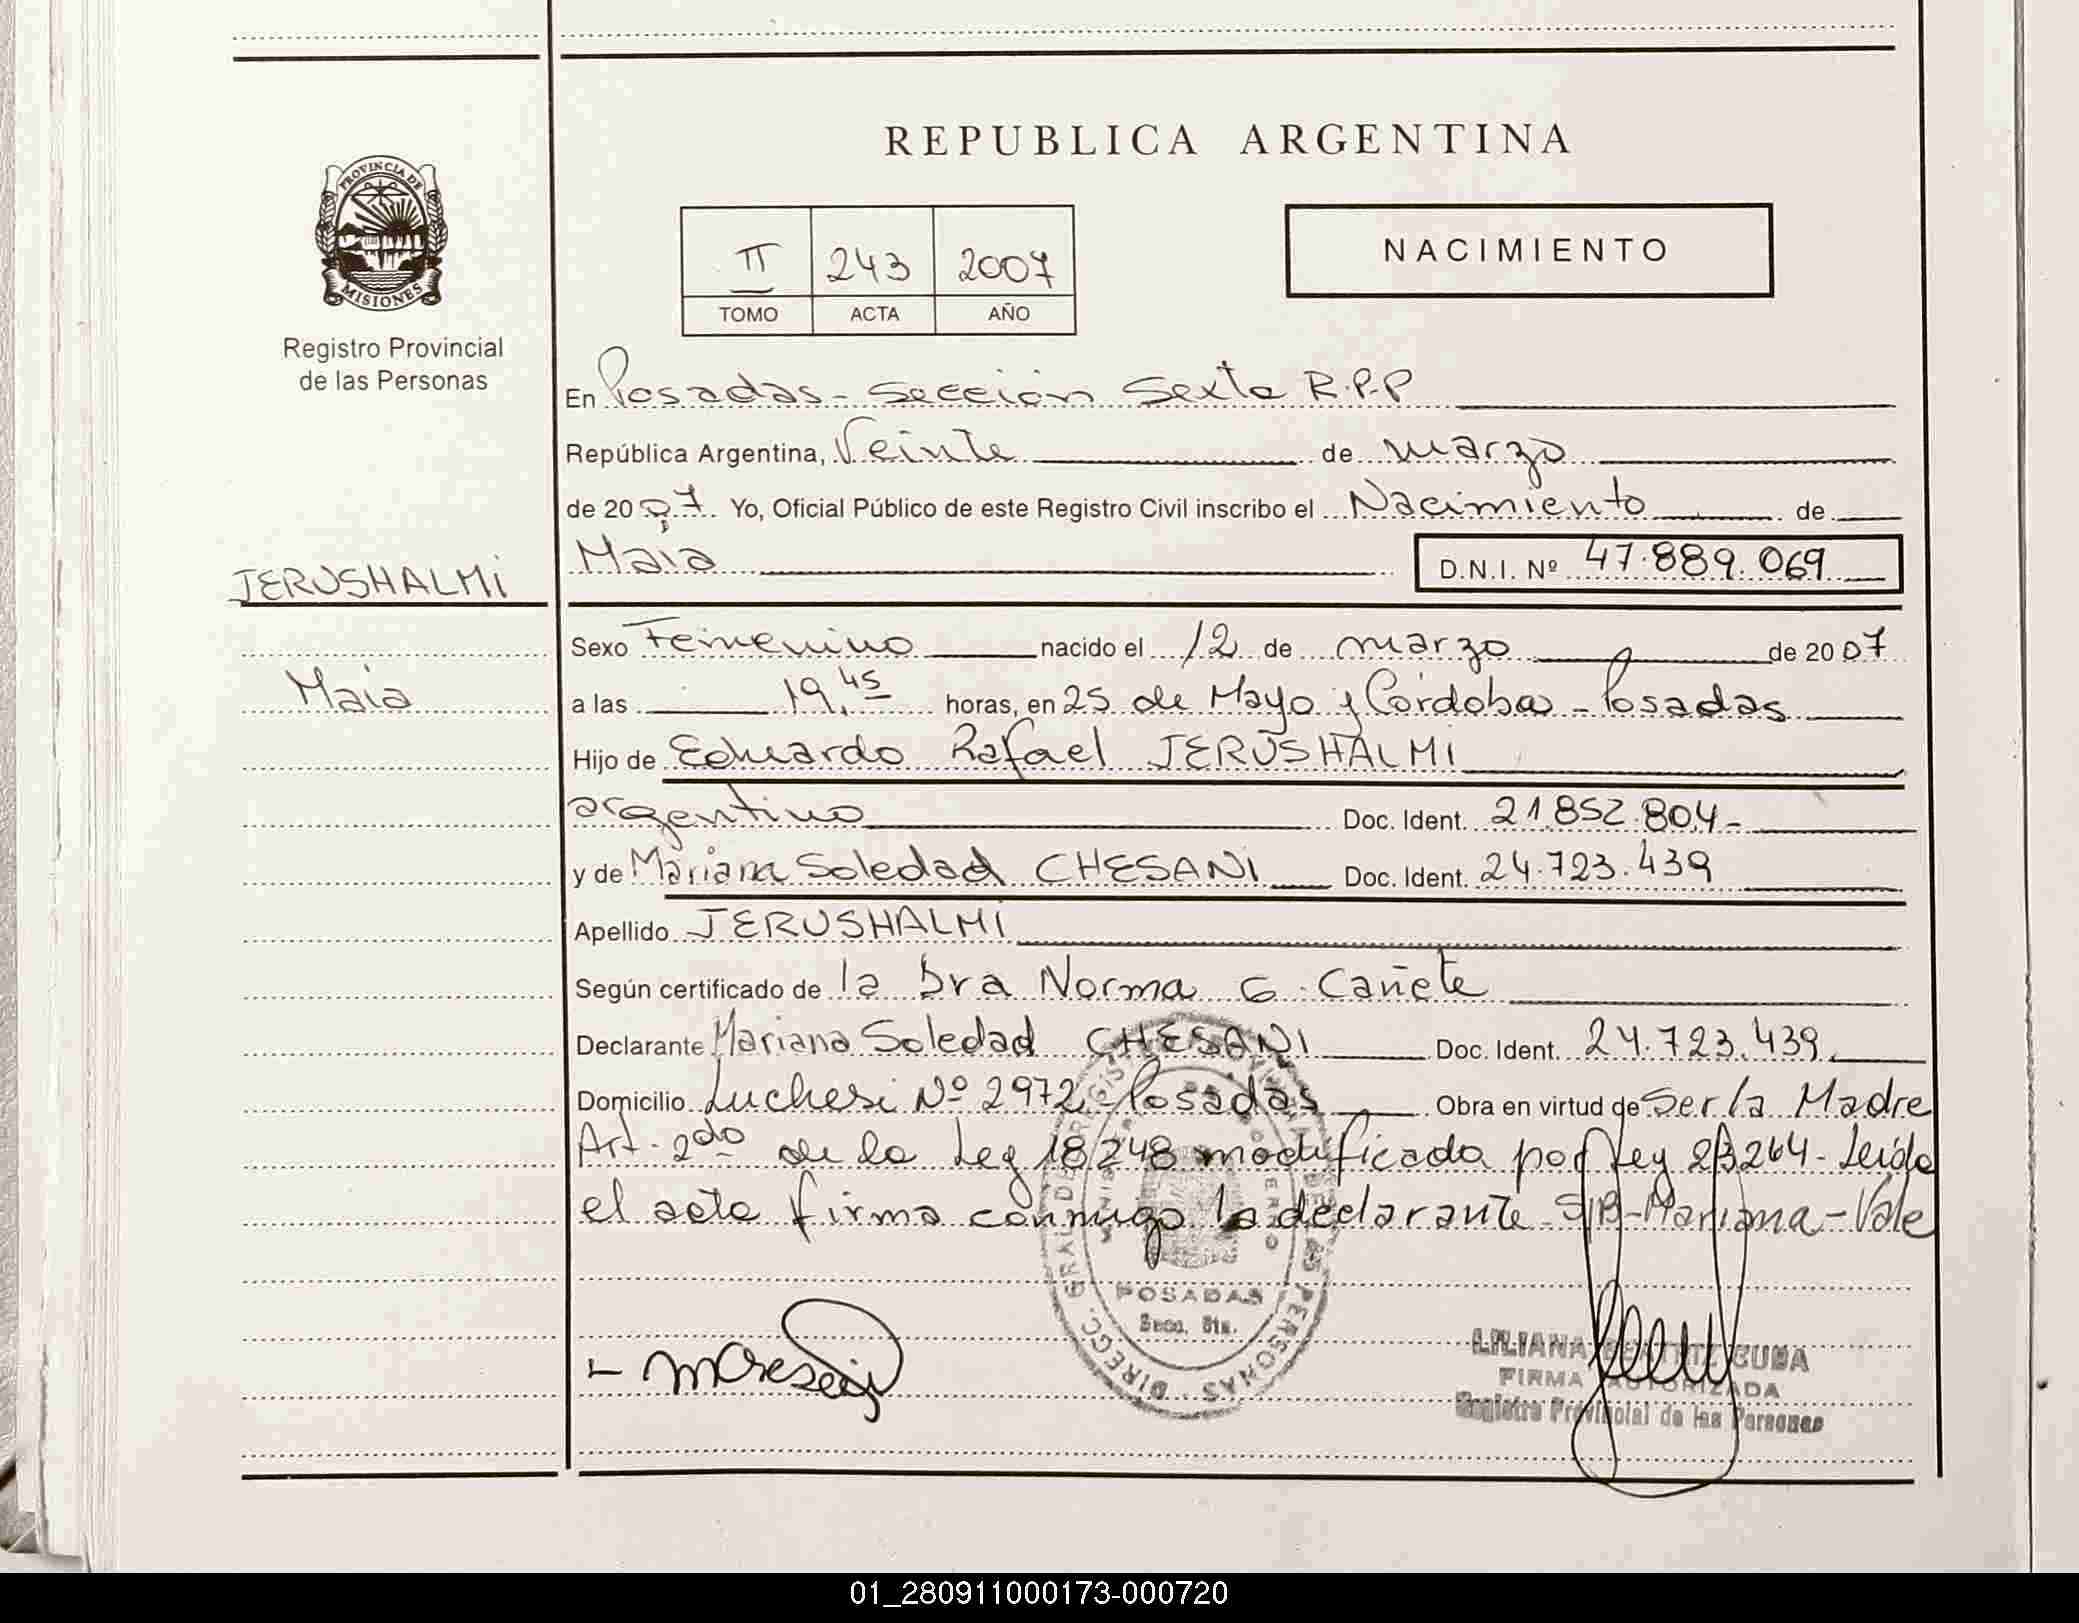 REPUBLICA ARGENTINA
PROVINCIA DE
MISIONES
Registro Provincial
de las Personas
II 243 2007
TOMO ACTA AÑO
NACIMIENTO
En Posadas - Sección Sexta R.P.P
República Argentina, Veinte de marzo
de 2007. Yo, Oficial Público de este Registro Civil inscribo el Nacimiento de
JERUSHALMI
Maia
Maia D.N.I. Nº 47.889.069
Sexo Femenino nacido el 12 de marzo de 2007
a las 19.45 horas, en 25 de Mayo y Córdoba - Posadas
Hijo de Eduardo Rafael JERUSHALMI
argentino Doc. Ident. 21.852.804-
y de Mariana Soledad CHESANI Doc. Ident. 24.723.439
Apellido JERUSHALMI
Según certificado de la Dra Norma G. Cañete
Declarante Mariana Soledad CHESANI Doc. Ident. 24.723.439
Domicilio Luchesi Nº 2972 - Posadas Obra en virtud de Ser la Madre
Art. 2do de la Ley 18248 modificada por Ley 23264 - Leída
el acta firma conmigo la declarante S/B - Mariana - Vale
POSADAS
Secc. 6ta.
LILIANA BEATRIZ CUBA
FIRMA AUTORIZADA
Registro Provincial de las Personas
01_280911000173-000720